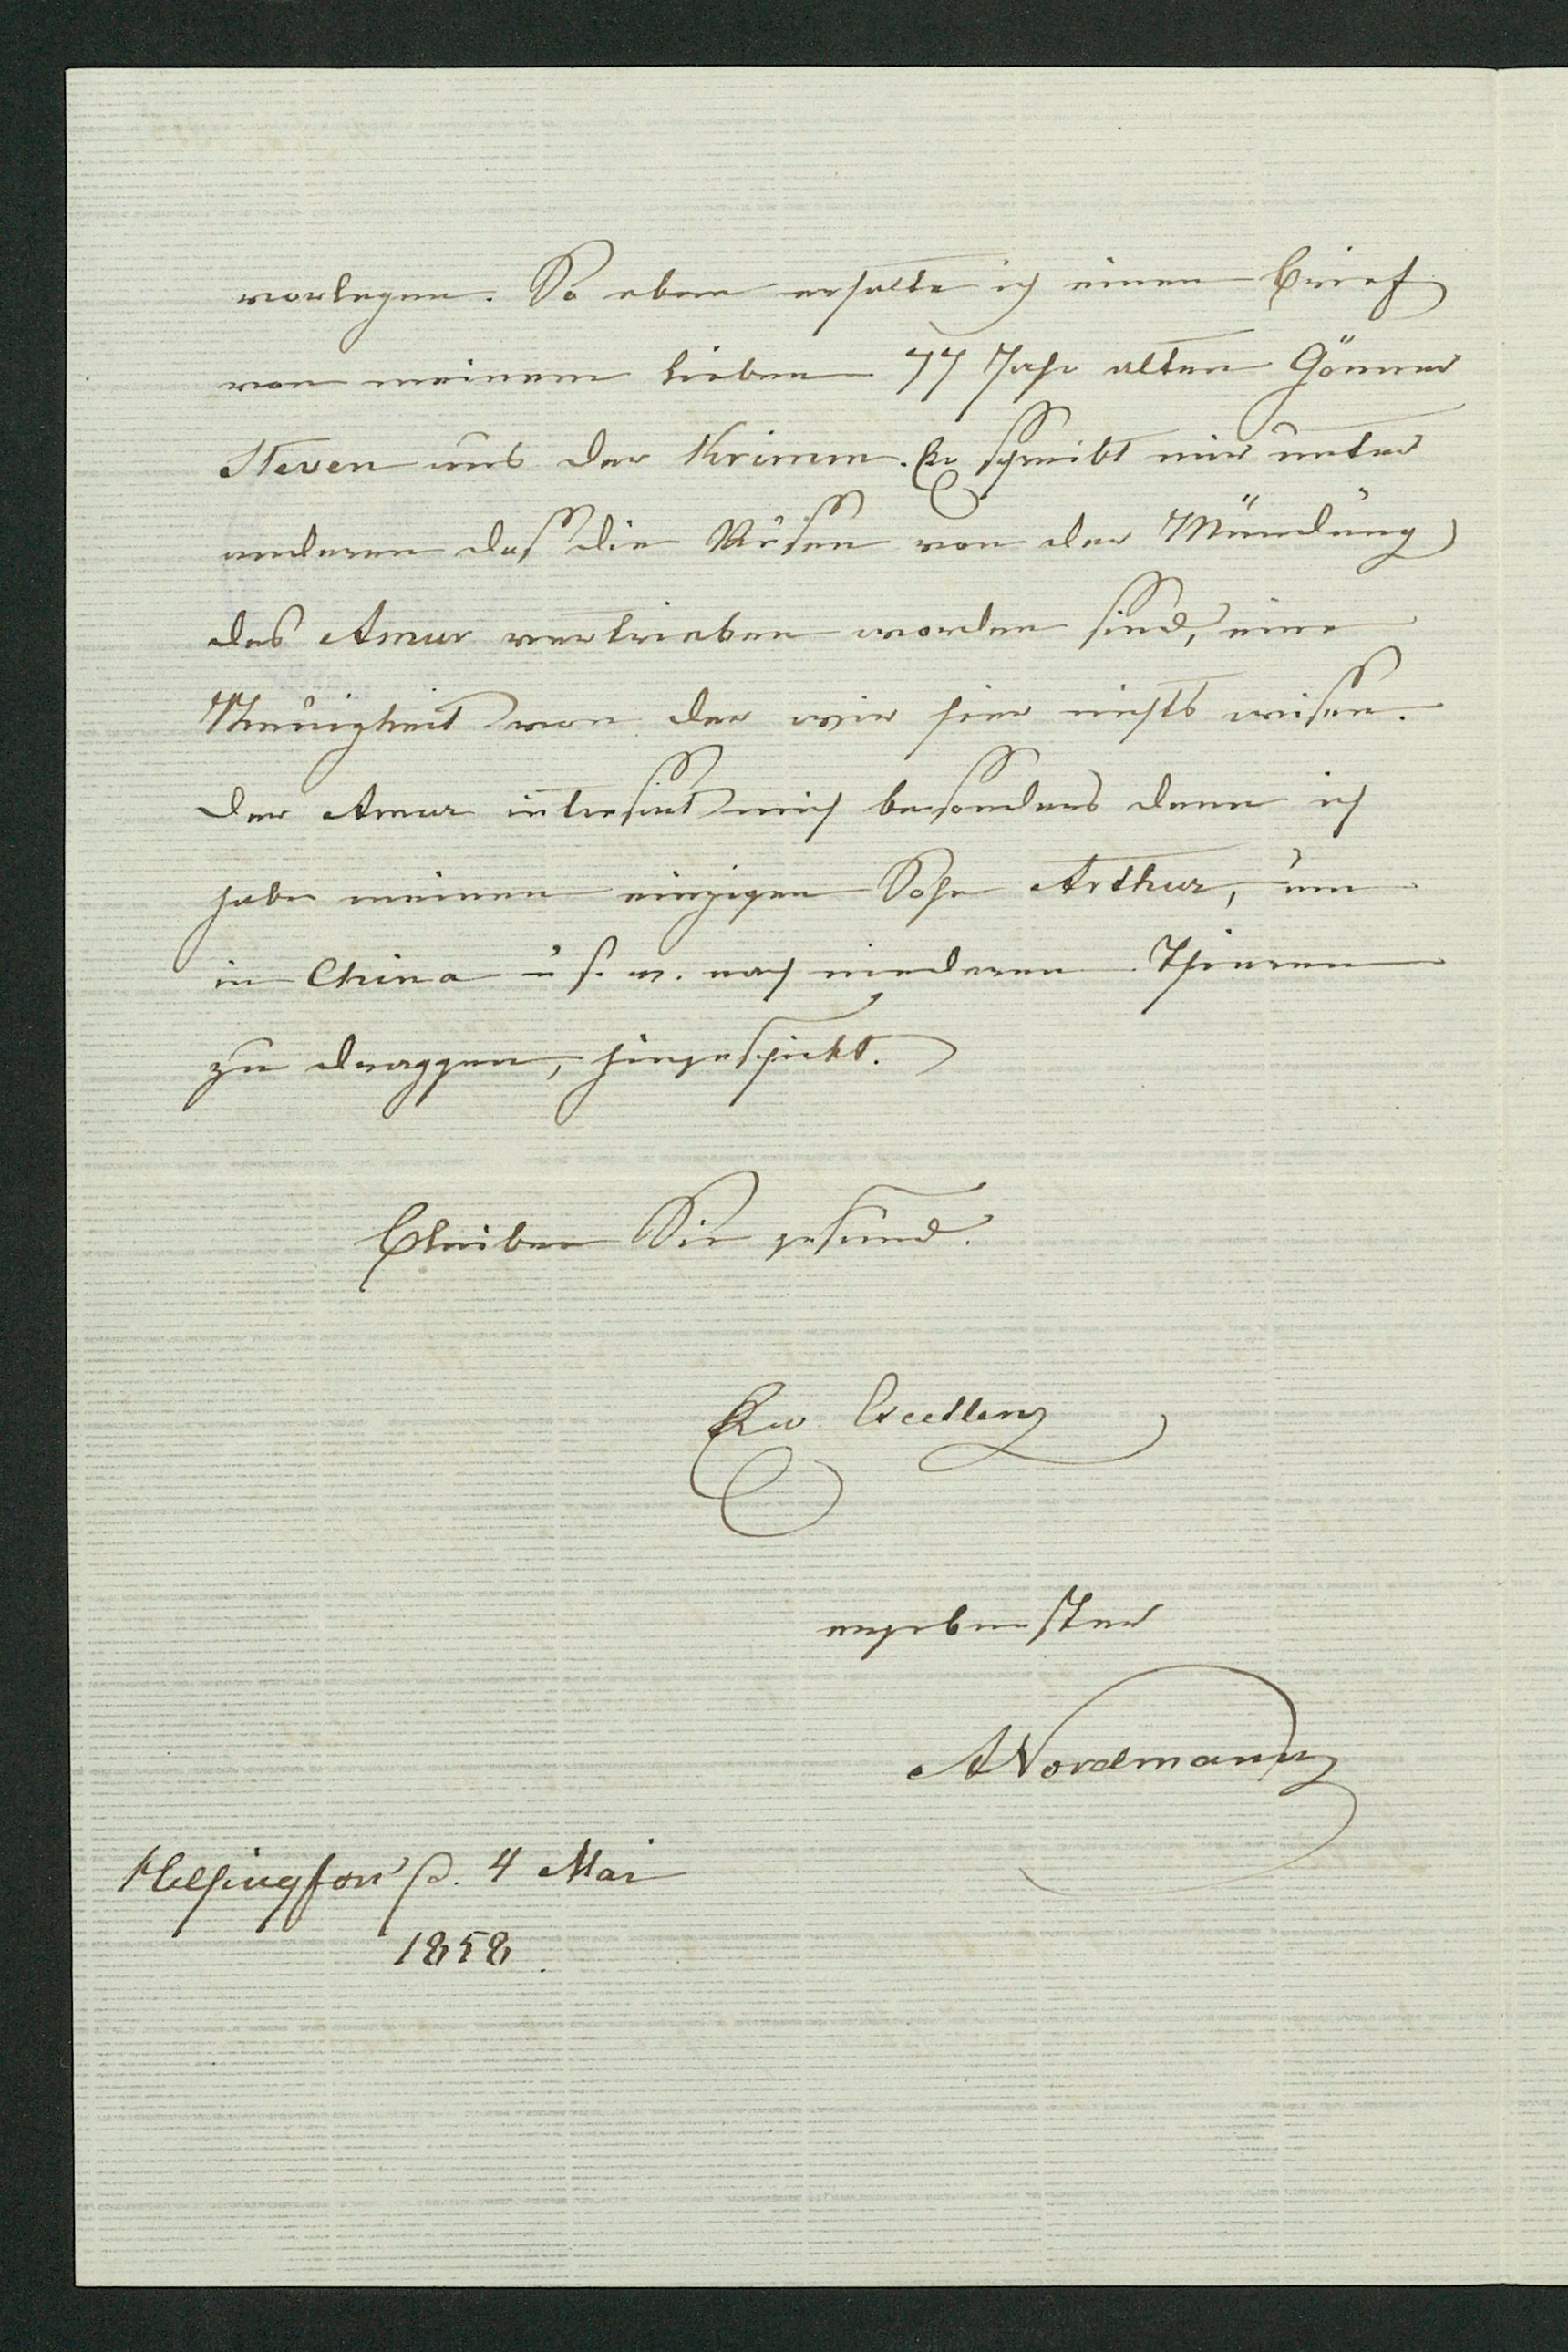 vorlegen. So eben erhalte ich einen Brief
von meinem lieben 77 Jahr alten Gönner
Steven aus der Krimm. Er schreibt mir unter
anderen daß die Rußen von der Mündung
des Amur vertrieben worden sind, eine
Neuigkeit von der wir hier nichts wißen.
Der Amur intreßirt mich besonders denn ich
habe meinen einzigen Sohn Arthur, um
in China u. s. w. nach niederen Thieren
zu draggen, hingeschickt.
Bleiben Sie gesund.
Ew. Excellenz
ergebenster
ANordmann
Helsingfors d. 4 Mai
1858.